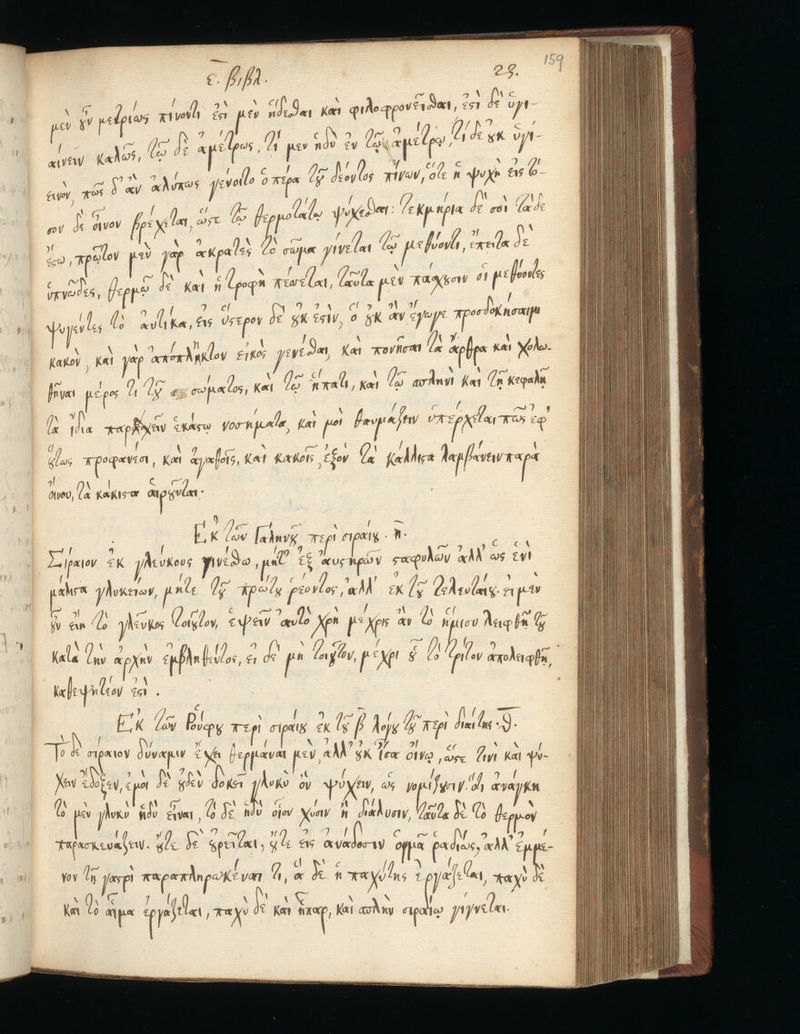 159
ε. βιβλ. 23.
μὲν ȣ̓ν μετρίως πίνοντι ἐϛὶ μὲν ἥδεσθαι καὶ φιλοφρονεῖσθαι, ἐϛὶ δὲ ὑγι-
αίνειν καλῶς, τῷ δὲ ἀμέτρως, τί μεν ἡδὺ ἐν τῷ ἀμέτρῳ, τί δε ȣκ ὑγι-
εινὸν, πῶς δ' ἂν ἀλύπως γένοιτο ὁ πέρα τȣ͂ δέοντος πίνων, ὅτε ἡ ψυχὴ εις τό-
σον δὲ οἶνον βρέχεται, ὥϛε τῷ θερμοτάτῳ ψύχεσθαι: τεκμήρια δέ σοι τάδε
ἔϛω, πρῶτον μὲν γὰρ ἀκρατὲς τὸ σῶμα γίνεται τῷ μεθύοντι, ἔπειτα δὲ
ὑπνῶδες, θερμῷ δὲ καὶ ἡ τροφὴ πέσσεται, ταῦτα μὲν πάσχȣσιν οἱ μεθύοντες
ψυγέντες τὸ αὐτίκα, εἰς ὕϛερον δὲ ȣκ ἐϛὶν, ὃ ȣκ ἂν ἔγωγε προσδοκήσαιμι
κακὸν, καὶ γὰρ ἀπόπληκτον εἰκὸς γενέσθαι, καὶ πονῆσαι τὰ ἄρθρα καὶ χολω-
θῆναι μέρος τι τȣ͂ σώματος, καὶ τῷ ἥπατι, καὶ τῷ σπληνὶ καὶ τῇ κεφαλῇ
τὰ ἴδια παρσχεῖν ἑκάϛῳ νοσήματα, καὶ μοὶ θαυμάζειν ὑπέρχεται πῶς ἐφ'
ȣ̔́τως προφανέσι, καὶ ἀγαθοῖς, καὶ κακοῖς, ἐξὸν τὰ κάλλιϛα λαμβάνειν παρὰ
οἴνου, τὰ κάκιϛα αἱρȣ͂νται.
Ἐκ τῶν Γαληνȣ͂ περὶ σιραίȣ. η̄.
Σίραιον ἐκ γλεύκους γινέσθω, μήτ' ἐξ αὐϛηρῶν ϛαφυλῶν ἀλλ' ὡς ἐνὶ
μάλιϛα γλυκείων, μήτε τȣ͂ πρώτȣ ῥέοντος, ἀλλ' ἐκ τȣ͂ τελευταίȣ. εἰ μὲν
ȣ̓ν εἴη τὸ γλεῦκος τοιȣ͂τον, ἑψεῖν αὐτὸ χρὴ μέχρις ἂν τὸ ἥμισυ λειφθῇ τȣ͂
κατὰ τὴν ἀρχὴν ἐμβληθέντος, εἰ δὲ μὴ τοιȣ͂τον, μέχρι ȣ̔͂ τὸ τρίτον ἀπολειφθῇ,
καθεψητέον ἐϛὶ.
Ἐκ τῶν Ῥούφȣ περὶ σιραίȣ ἐκ τȣ͂ β̄ λόγȣ τȣ͂ περὶ διαίτης. θ̄.
Τὸ δὲ σίραιον δύναμιν ἔχει θερμάναι μὲν, ἀλλ' ȣκ ἴσα οἴνῳ, ὥϛε τινὶ καὶ ψύ-
χειν ἔδοξεν, ἐμοὶ δὲ ȣ̓δὲν δοκεῖ γλυκὺ ὂν ψύχειν, ὡς νομίζȣσιν. ὅτι ἀνάγκη
τὸ μὲν γλυκὺ ἡδὺ εἶναι, τὸ δὲ ἡδὺ οἷον χύσιν ἢ διάλυσιν, ταῦτα δὲ τὸ θερμὸν
παρασκευάζειν. ȣ̓́τε δὲ ȣ̓ρεῖται, ȣ̓́τε εἰς ἀνάδοσιν ὁρμᾷ ῥαδίως, ἀλλ' ἐμμέ-
νον τῇ γαϛρὶ παραπληρωκέναι τι, ἃ δὲ ἡ παχύτης ἐργάζεται, παχὺ δὲ
καὶ τὸ αἷμα ἐργάζεται, παχὺ δὲ καὶ ἧπαρ, καὶ σπλὴν σιραίῳ γίγνεται.